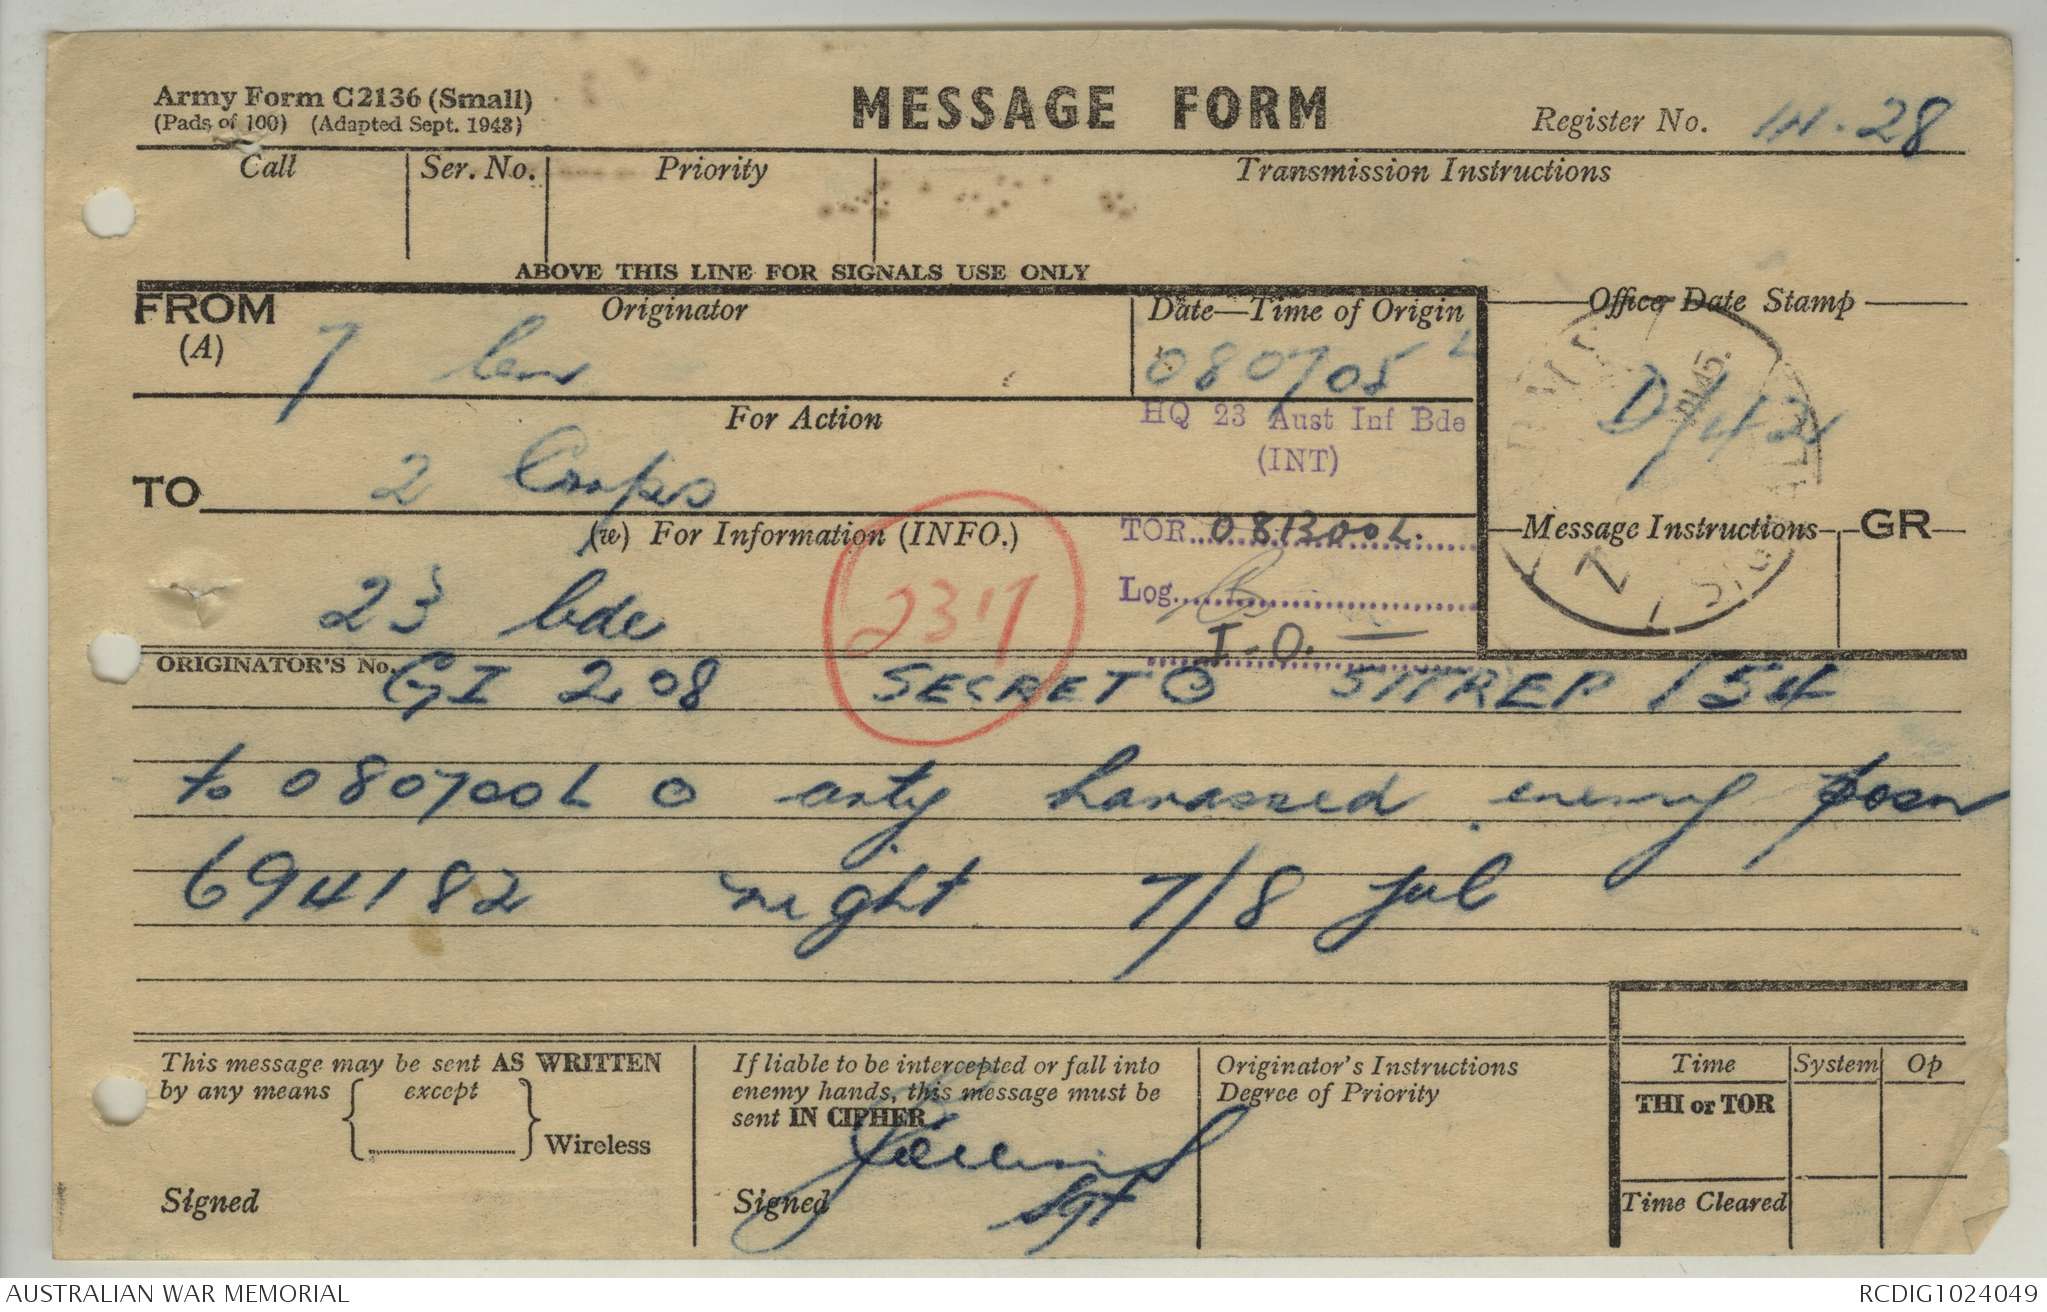 Army Form C2136 (Small)
(Pads of 100) (Adapted Sept. 1943)
MESSAGE FORM
Register No. IN. 28
Call
Ser. No.
Priority
Transmission Instructions
ABOVE THIS LINE FOR SIGNALS USE ONLY
FROM
(A)
Originator
7
Date—Time of Origin
080705 L
Office Date Stamp
D/42
For Action
TO
2 Corps
HQ 23 Aust Inf Bde
(INT)
(W) For Information (INFO.)
23 bde
2317
TOR 081300L.
Log
I.O.
Message Instructions
GR
ORIGINATOR'S No. GI 208 SECRET O SITREP 154
to 080700L O arty harassed enemy posn
694182 night 7/8 Jul
This message may be sent AS WRITTEN
by any means except
Wireless
Signed
If liable to be intercepted or fall into
enemy hands, this message must be
sent IN CIPHER
Signed
Sgt
Originator's Instructions
Degree of Priority
Time
System
Op
THI or TOR
Time Cleared
AUSTRALIAN WAR MEMORIAL
RCDIG1024049